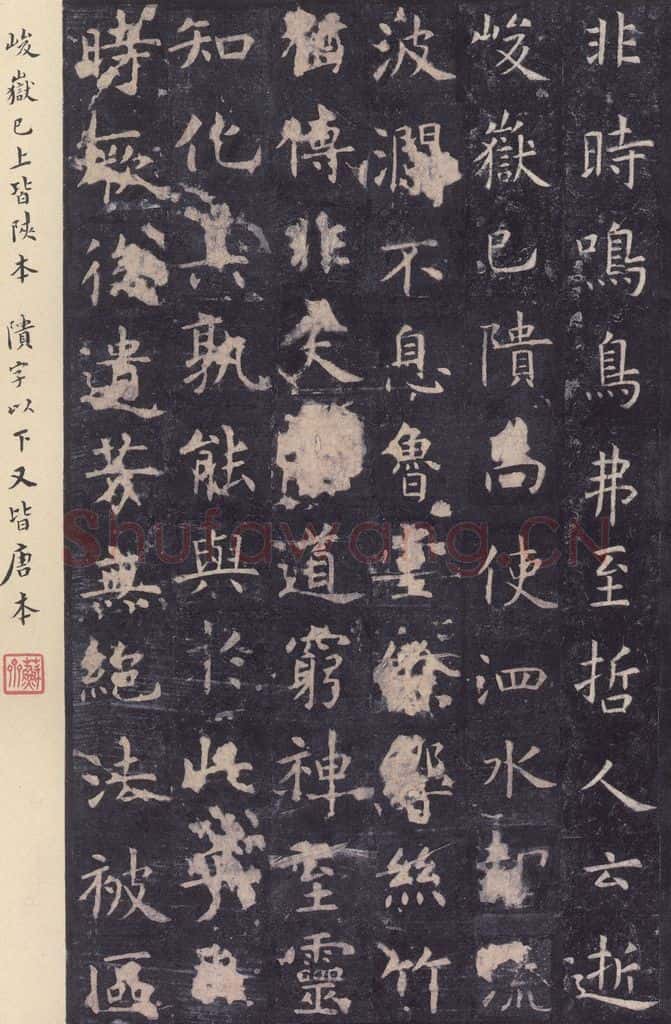 非時鳴鳥弗至哲人云逝
峻嶽已隤尚使泗水却流
波瀾不息魯堂餘響絲竹
猶傳非夫道窮神至靈
知化其孰能與於此乎自
時厥後遺芳無絕法被區
峻嶽已上皆陝本 隤字以下又皆唐本
Shufawang.CN